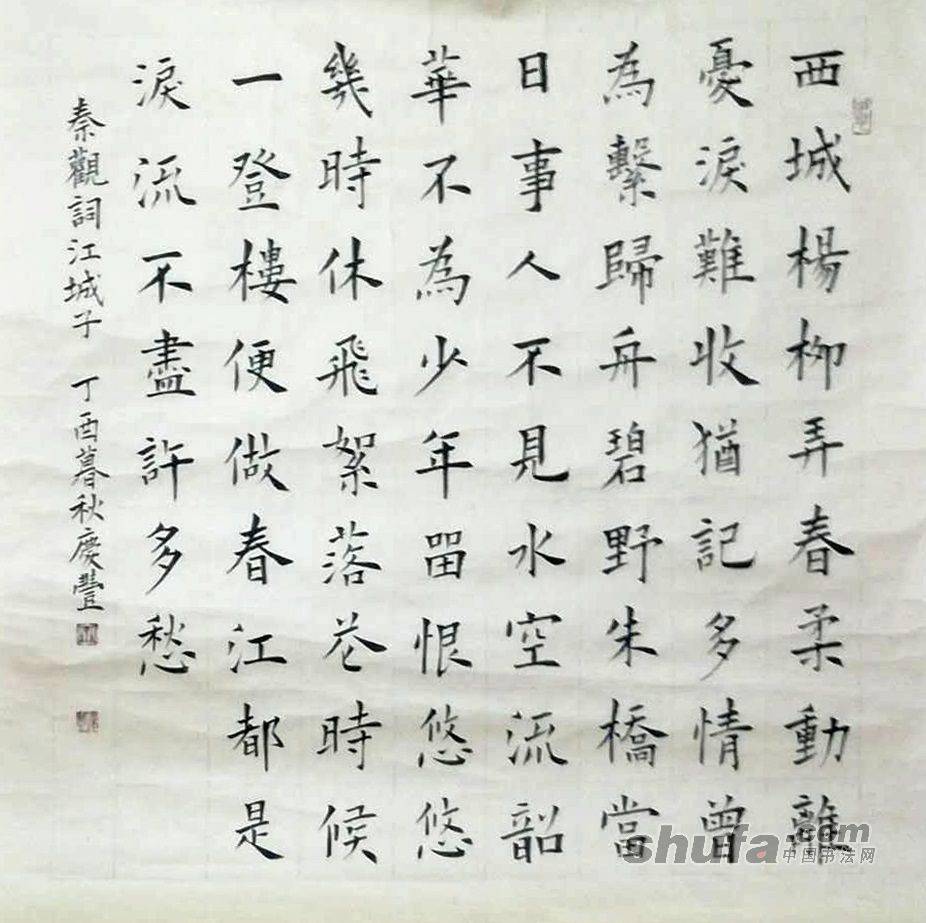 西城楊柳弄春柔動離
憂淚難收猶記多情曾
為繫歸舟碧野朱橋當
日事人不見水空流韶
華不為少年留恨悠悠
幾時休飛絮落花時候
一登樓便做春江都是
淚流不盡許多愁
秦觀詞江城子 丁酉暮秋慶豐
shufa.com
中国书法网